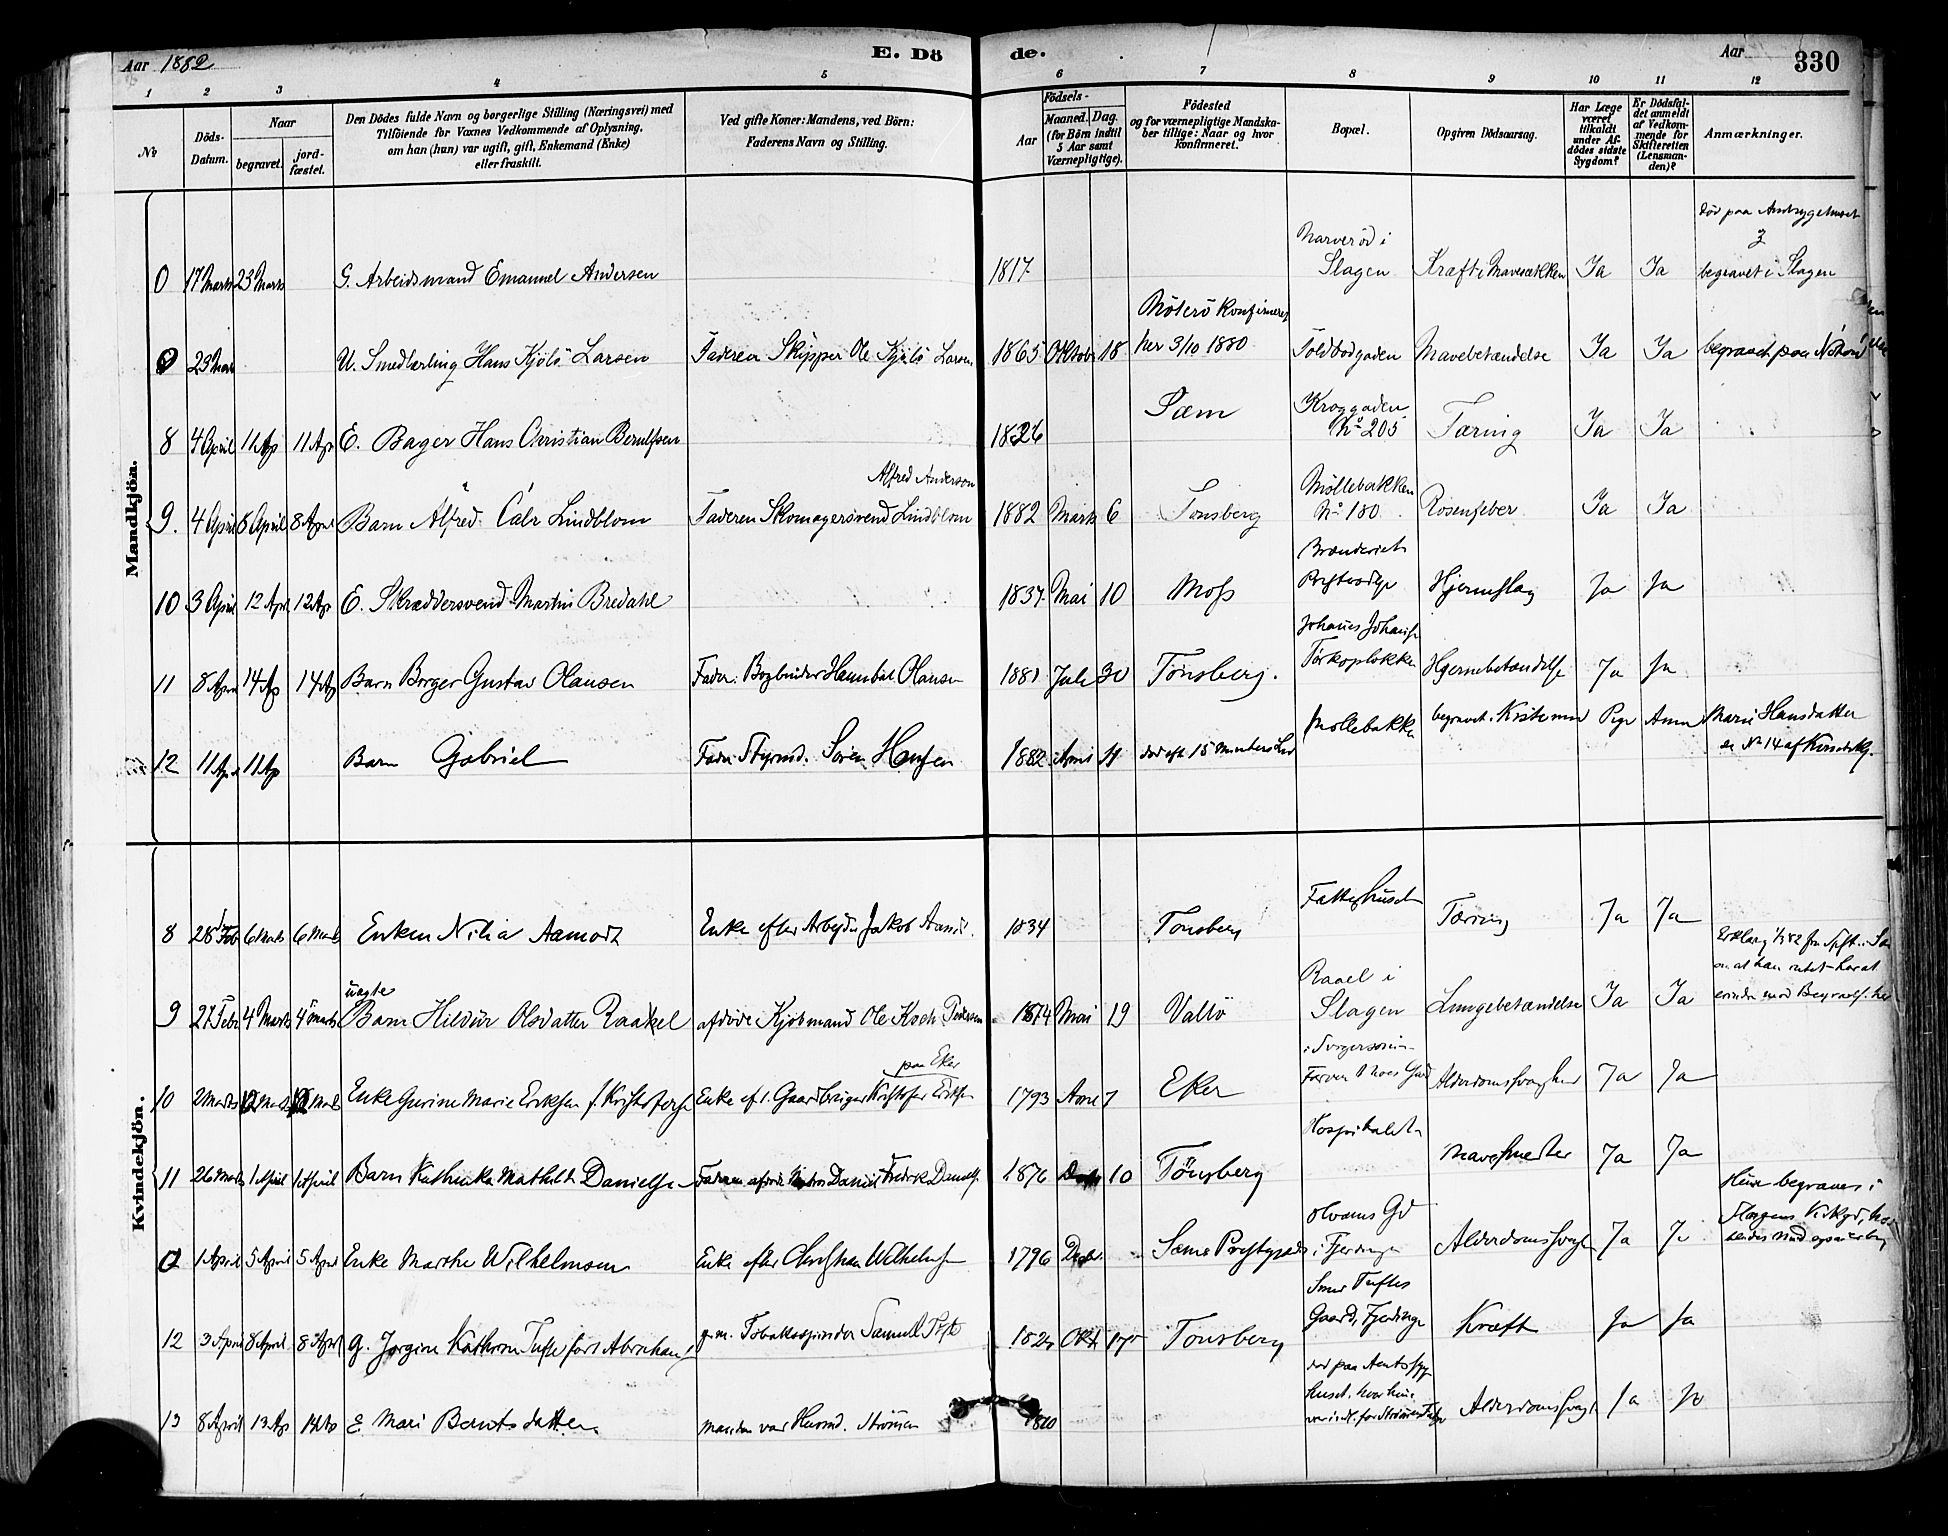 Aar 1882
E. Dö
de.
Aar
330
1 2 3 4 5 6 7 8 9 10 11 12
No
Döds-Datum.
Naar
begravet.
jord-fæstet.
Den Dödes fulde Navn og borgerlige Stilling (Næringsvei) med
Tilföiende for Voxnes Vedkommende af Oplysning,
om han (hun) var ugift, gift, Enkemand (Enke)
eller fraskilt.
Ved gifte Koner: Mandens, ved Börn:
Faderens Navn og Stilling.
Födsels-
Aar
Maaned. Dag.
(for Börn indtil
5 Aar samt
Værnepligtige).
Födested
og for værnepligtige Mandska-
ber tillige: Naar og hvor
konfirmeret.
Bopæl.
Opgiven Dödsaarsag.
Har Læge
været
tilkaldt
under Af-
dödes sidste
Sygdom?
Er Dödsfal-
det anmeldt
af Vedkom-
mende for
Skifteretten
(Lensman-
den)?
Anmærkninger.
Mandkjön.
død paa Amtsygehuset
0 17 Marts 23 Marts G. Arbeidsmand Emanuel Andersen 1817 Narverød i Slagen Kræft i Mavesækken Ja Ja begravet i Slagen
0 23 Mar U. Smedlærling Hans Kjölö Larsen Faderen Skipper Ole Kjölö Larsen 1865 Oktober 18 Nöterö Konfirmeret her 3/10 1880 Toldbodgaden Mavebetændelse Ja Ja begravet paa
8 4 April 11 Ap 11 Apr E. Bager Hans Christian Berulfsen 1826 Sæm Kroggaden No 205 Tæring Ja Ja
Alfred Anderson
9. 4 April 8 April 8 April Barn Alfred Carl Lindblom Faderen Skomagersvend Lindblom 1882 Marts 6 Tonsberg Møllebakken No 180 Rosenfeber Ja Ja
10 3 April 12 April 12 Ap E. Skræddersvend Martin Bredahl 1837 Mai 10 Moss Hjerneslag Ja Ja
11 8 April 14 Ap 14 Ap Barn Borger Gustav Olausen Fader: Bogbinder Hannibal Olausen 1881 Juli 30 Tönsberg. Hjernebetændelse Ja Ja
12 11 Apr 11 Ap Barn Gabriel Fader Styrmd. Sören Hansen 1882 April 11 død efter 15 Minuters Liv Møllebakke begravet i Kiste med Pige Anna Marie Hansdatter
se No 14 af Kvindekj.
Kvindekjön.
8 28 Feb 6 Marts 6 Marts Enken Nilia Aamodt Enke efter Arbejder Jakob Aamodt. 1834 Tonsberg Fattighuset Tæring Ja Ja
uægte
9 27 Febr 4 Marts 4 Marts Barn Hildur Olsdatter Raakel afdöde Kjöbmand Ole Koch Pedersen 1874 Mai 19 Vallö Raael i Slagen Lungebetændelse Ja Ja
paa Eker
10 2 Marts 12 Marts 12 Marts Enke Gurine Marie Eriksen f. Kristofersen Enke ef. Gaardbruger Kristofer Eriksen 1793 7 Eker Alderdomssvaghed Ja Ja
11 26 Marts 1 April 1 April Barn Kathinka Mathilde Danielsen Faderen afdöde Daniel Fredrik Danielsen 1876 10 Tönsberg Hospitalet Ja Ja
0 1 April 5 April 5 April Enke Marthe Wilhelmsen Enke efter Christian Wilhelmsen 1796 Decbr. Sæms Præstegjeld i Fjerdingen Alderdomssvagh Ja Ja Hun begraves i Slagens Kirkgd,
12 3 April 8 April 8 April G. Jorgine Kathrine Tufte föd Abrahams g. m. Tobaksspinder Samuel Tufte 182 Okt Tonsberg Tuftes Gaard, Fjerdinge Kræft Ja Ja
13 8 April 13 Ap 13 Ap E. Mari Berntsdatter Manden var Husmd. 1810 død paa Amtssyg huset, hvor hun Alderdomssvagh Ja Ja